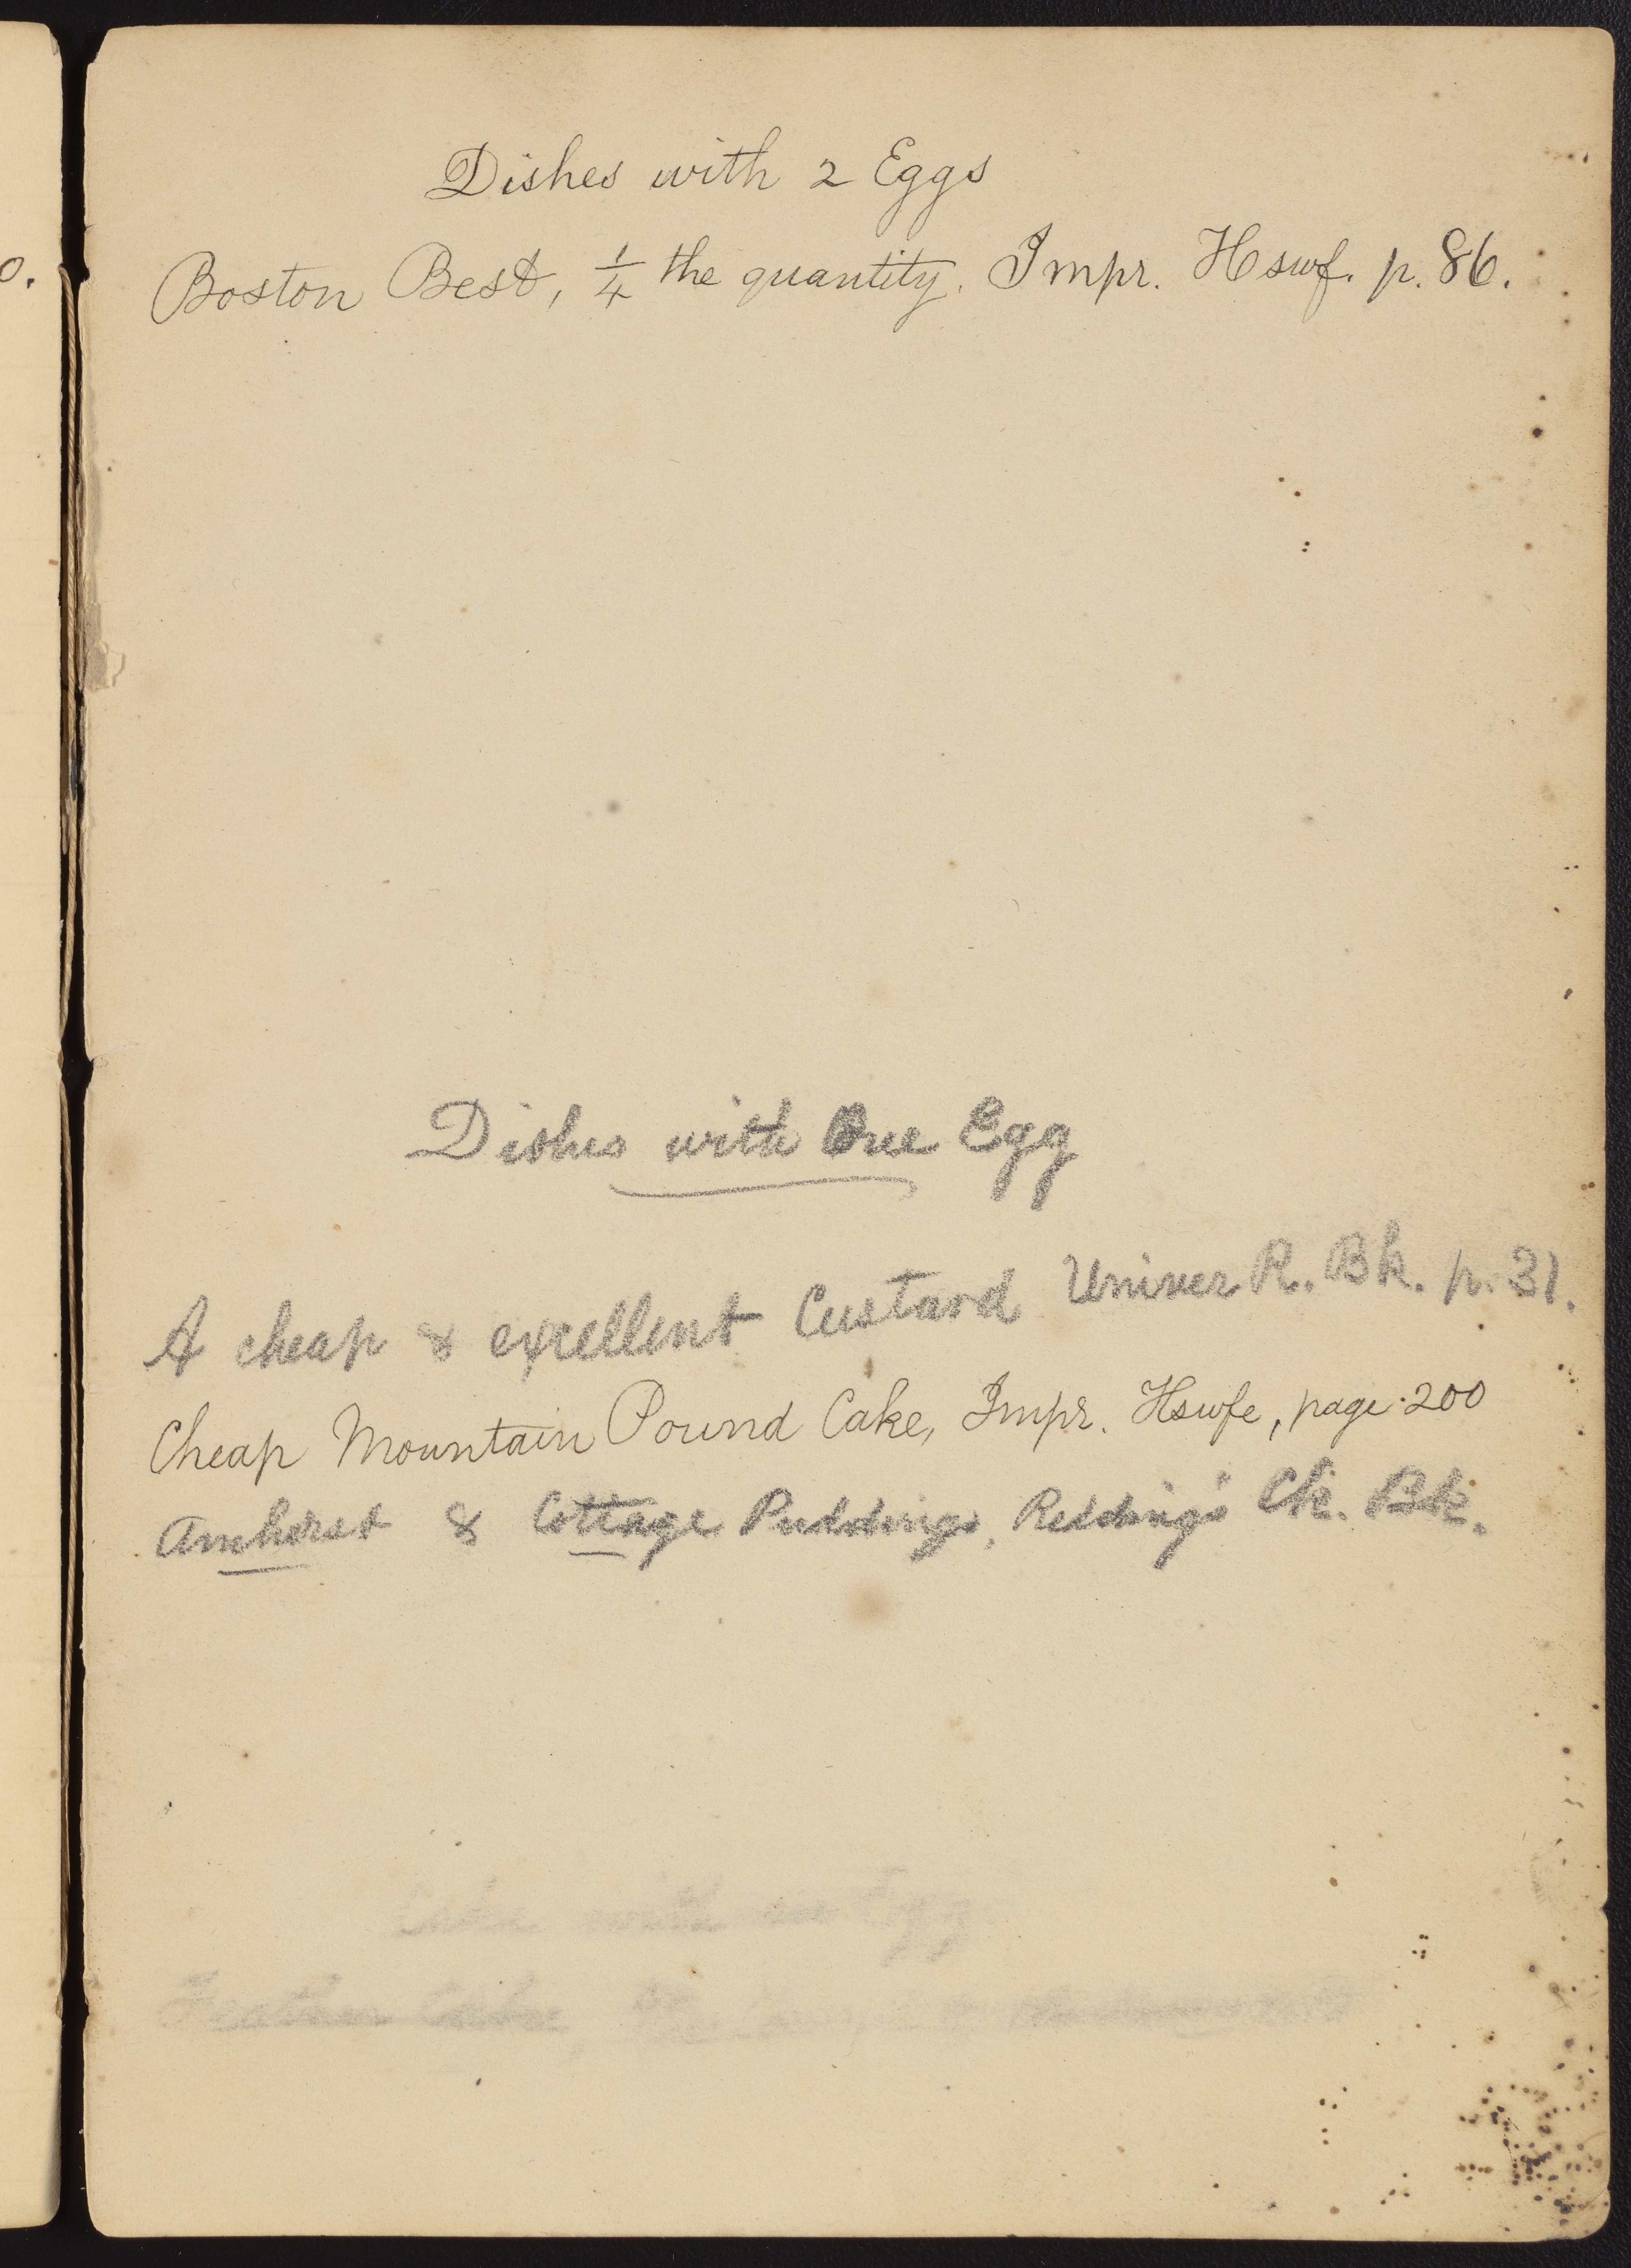 o.
Dishes with 2 Eggs
Boston Best, 1/4 the quantity. Impr. Hswf. p. 86.
Dishes with One Egg
A cheap & excellent Custard Univer R. Bk. p. 31.
Cheap Mountain Pound Cake, Impr. Hswfe, page 200
Amherst & Cottage Puddings, Redding's Ck. Bk.
Cake with no Egg
Feather Cake,